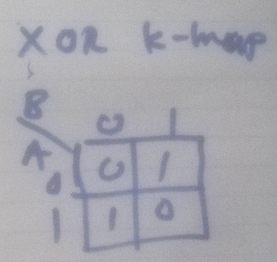 XOR k-map
B
0 1
A
0 0 1
1 1 0